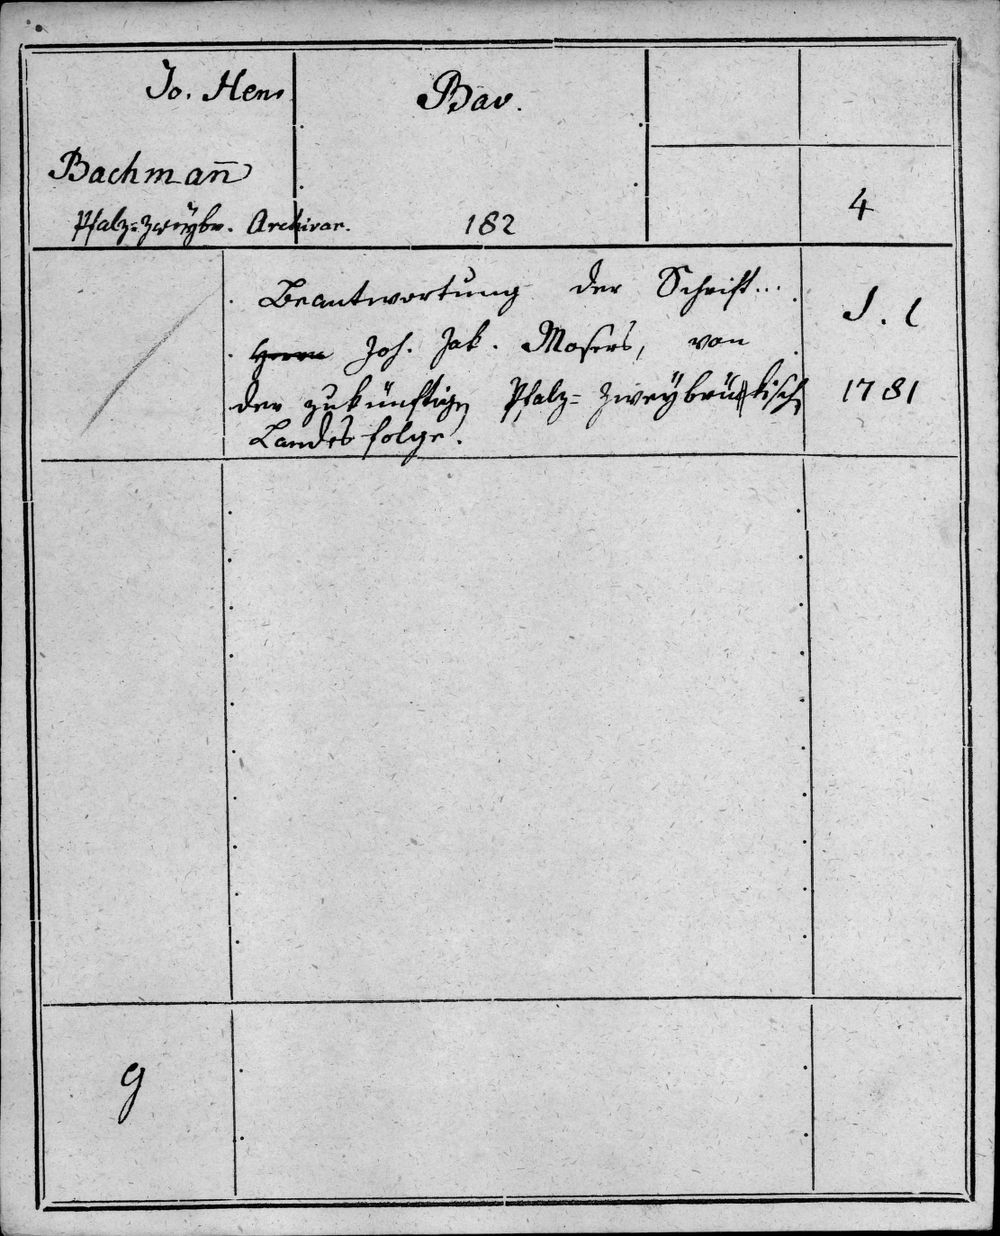 Jo. Hen.
Bav.
Bachmañ
4
Pfalz=zweÿbr. Archivar.
182
Beantwortung der Schrift...
S. l
Herrn Joh. Jak. Mosers, von
der zukünftigen Pfalz=Zweÿbrückisch.
1781
Landesfolge.
g